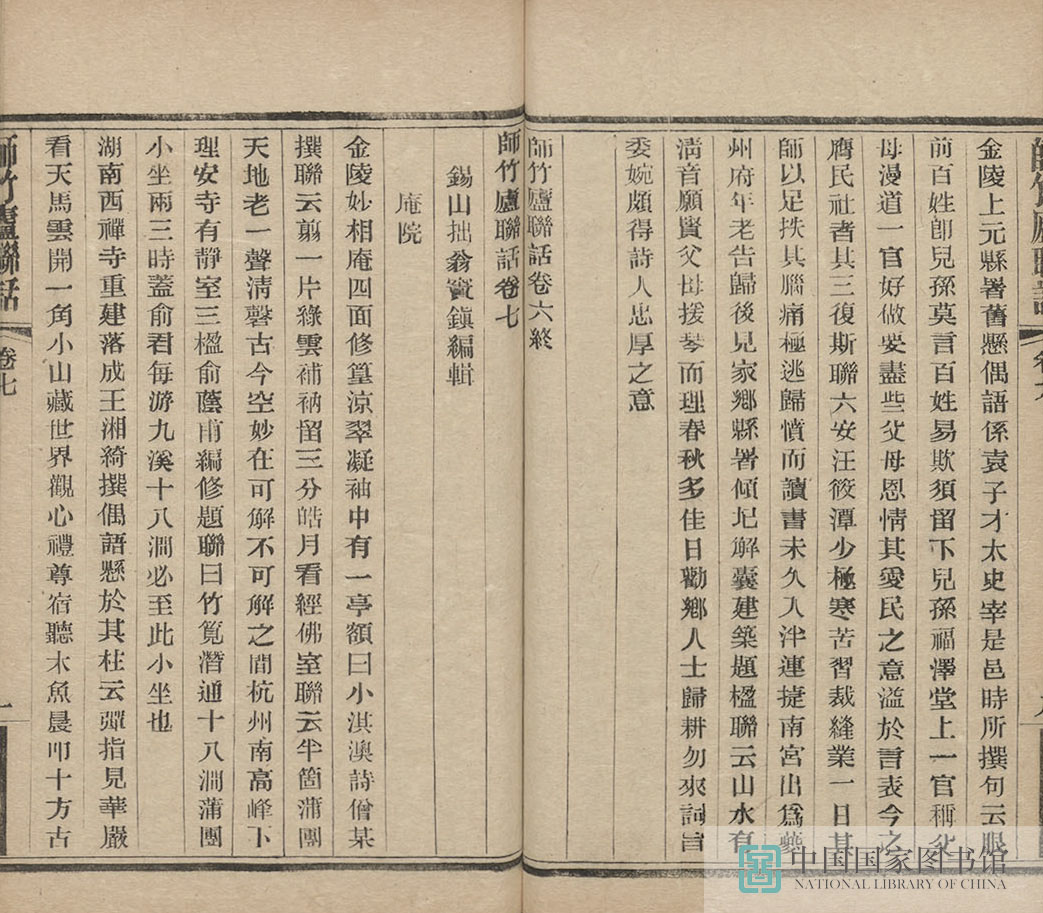 師竹廬聯話
金陵上元縣署舊懸偶語係袁子才太史宰是邑時所撰句云眼
前百姓卽兒孫莫言百姓易欺須留下兒孫福澤堂上一官稱父
母漫道一官好做要盡些父母恩情其愛民之意溢於言表今之
膺民社者其三復斯聯六安汪筱潭少極寒苦習裁縫業一日其
師以足抶其腦痛極逃歸憤而讀書未久入泮連捷南宮出爲夔
州府年老告歸後見家鄉縣署傾圮解囊建築題楹聯云山水有
淸音願賢父母援琴而理春秋多佳日勸鄉人士歸耕勿來詞旨
委婉頗得詩人忠厚之意
師竹廬聯話卷六終
師竹廬聯話卷七
錫山拙翁竇鎭編輯
庵院
金陵妙相庵四面修篁涼翠凝袖中有一亭額曰小淇澳詩僧某
撰聯云翦一片綠雲補衲留三分皓月看經佛室聯云半箇蒲團
天地老一聲淸磬古今空妙在可解不可解之間杭州南高峰下
理安寺有靜室三楹俞蔭甫編修題聯曰竹筧潛通十八澗蒲團
小坐兩三時蓋俞君每游九溪十八澗必至此小坐也
湖南西禪寺重建落成王湘綺撰偶語懸於其柱云彈指見華嚴
看天馬雲開一角小山藏世界觀心禮尊宿聽木魚晨叩十方古
師竹廬聯話
卷七
一
中国国家图书馆
NATIONAL LIBRARY OF CHINA